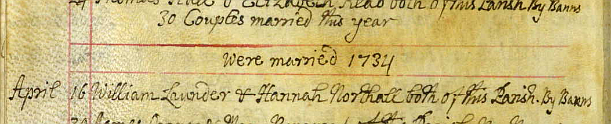 & Elizabeth Read both of this Parish By Banns
30 Couples married this year
Were married 1734
April 16 William Launder & Hannah Northall both of this Parish. By Banns